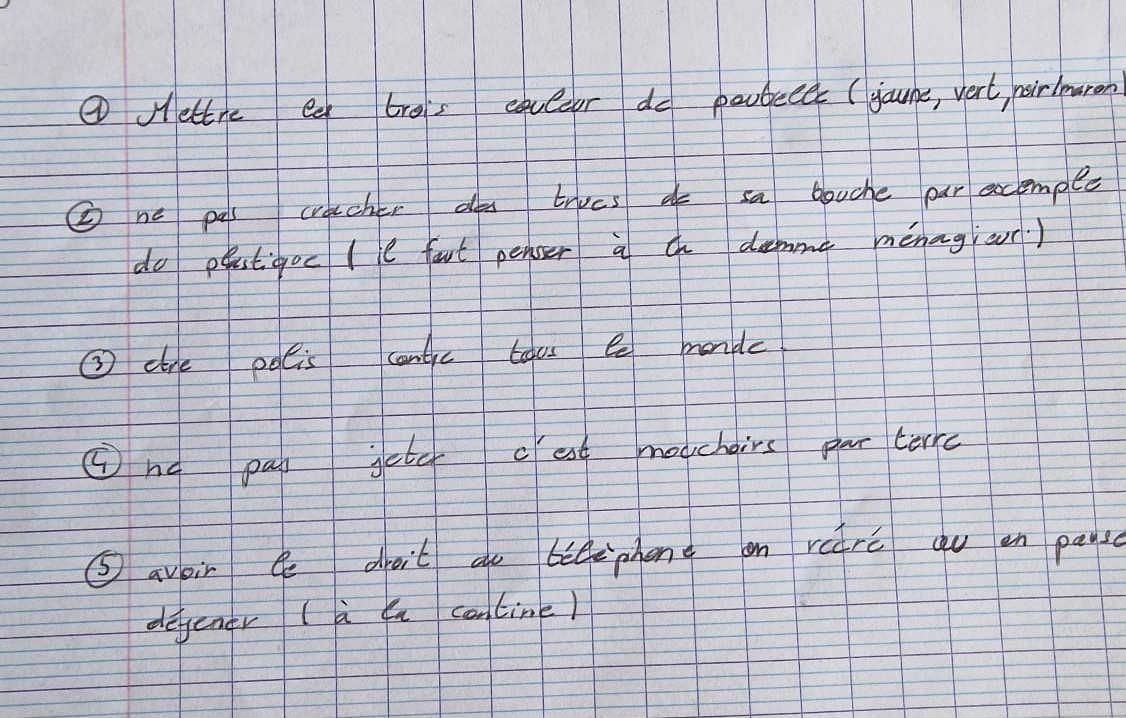 ① Mettre les trois couleur de poubelle (jaune, vert, noir/maron)
② ne pas cracher des trucs de sa bouche par exemple
du plastique (il faut penser à la damme ménagieur.)
③ etre polis contre tous le monde.
④ ne pas jeter c'est mouchoirs par terre
⑤ avoir le droit au téléphone en récré ou en pause
déjener (à la cantine)